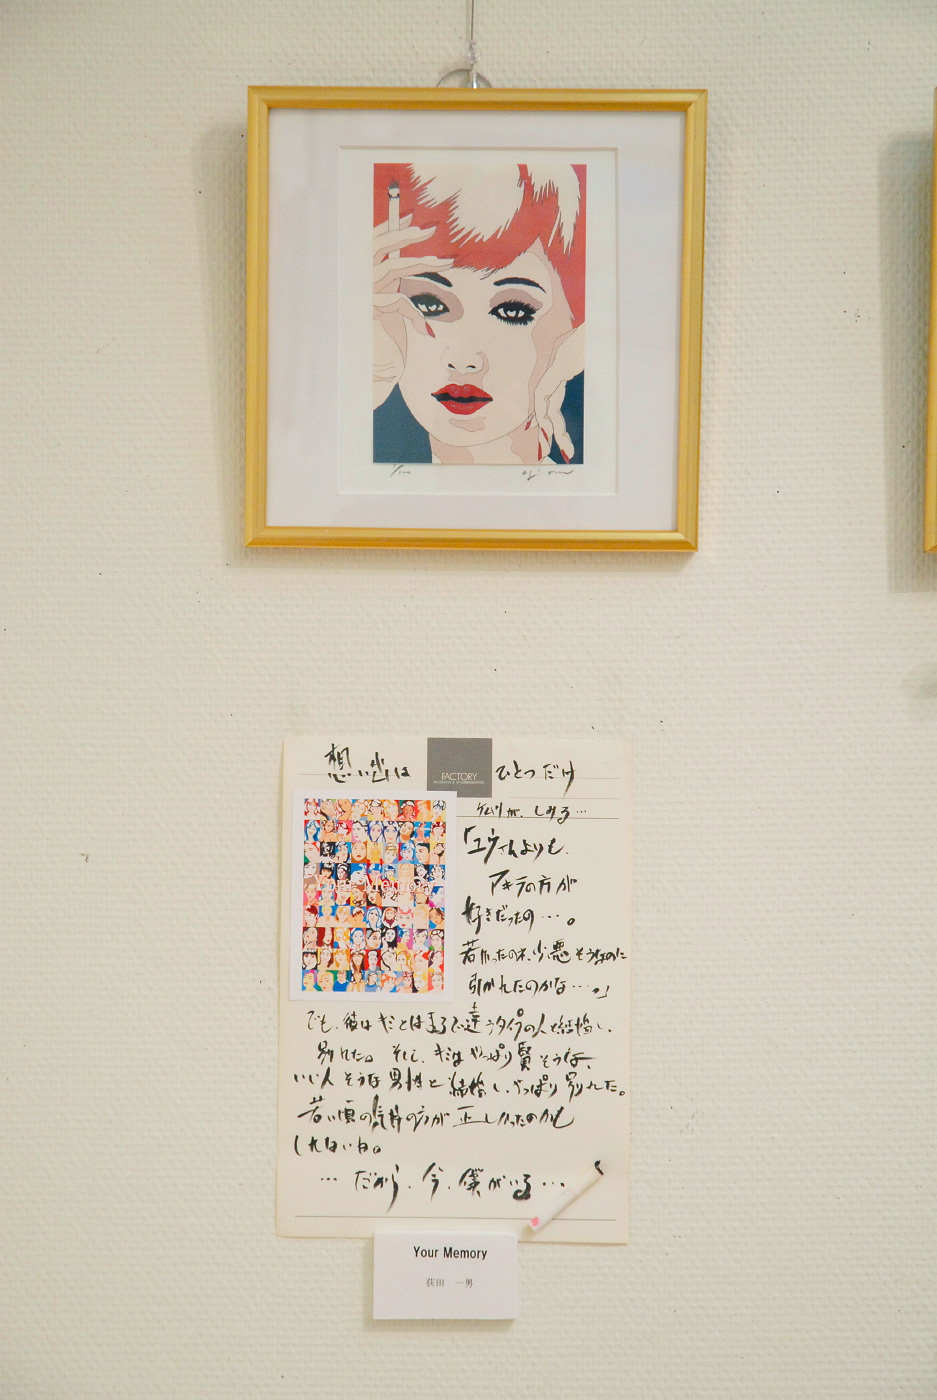 想い出は ひとつだけ
FACTORY
ケムリが、しみる…
Your Memory
「ユウさんよりも、
アキラの方が
好きだったの…。
若かったのネ、少悪そうなのに
引かれたのかな…。」
でも、彼はキミとはまるで違うタイプの人と結婚し、
別れた。そして、キミはやっぱり賢そうな、
いい人そうな男性と結婚し、やっぱり別れた。
若い頃の気持の方が正しかったのかも
しれないね。
…だから、今、僕がいる…。
Your Memory
荻田 一男